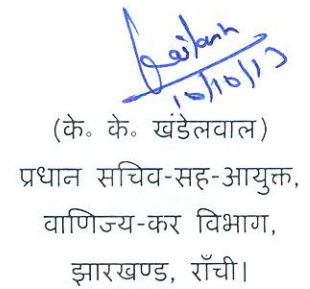 10/10/13
(के० के० खंडेलवाल)
प्रधान सचिव-सह-आयुक्त,
वाणिज्य-कर विभाग,
झारखण्ड, राँची।